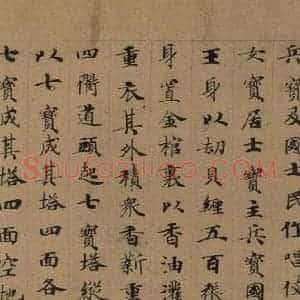 兵寶及國士民作唱伎
女寶居士寶主兵寶國
王身以劫貝纏五百張
身置金棺以香油灌
重衣其外積衆香薪重
四衢道頭起七寶塔縱
以七寶成其塔四面各
七寶成其塔四面空地